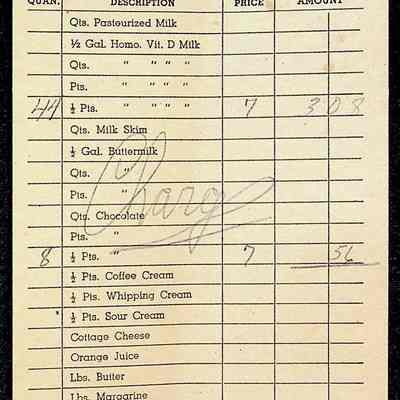 QUAN. DESCRIPTION PRICE AMOUNT
Qts. Pasteurized Milk
½ Gal. Homo. Vit. D Milk
Qts. " " " "
Pts. " " " "
44 ½ Pts. " " " " 7 3 08
Qts. Milk Skim
½ Gal. Buttermilk
Qts. "
Pts. "
Charg
Qts. Chocolate
Pts. "
8 ½ Pts. " 7 56
½ Pts. Coffee Cream
½ Pts. Whipping Cream
½ Pts. Sour Cream
Cottage Cheese
Orange Juice
Lbs. Butter
Lbs. Margarine